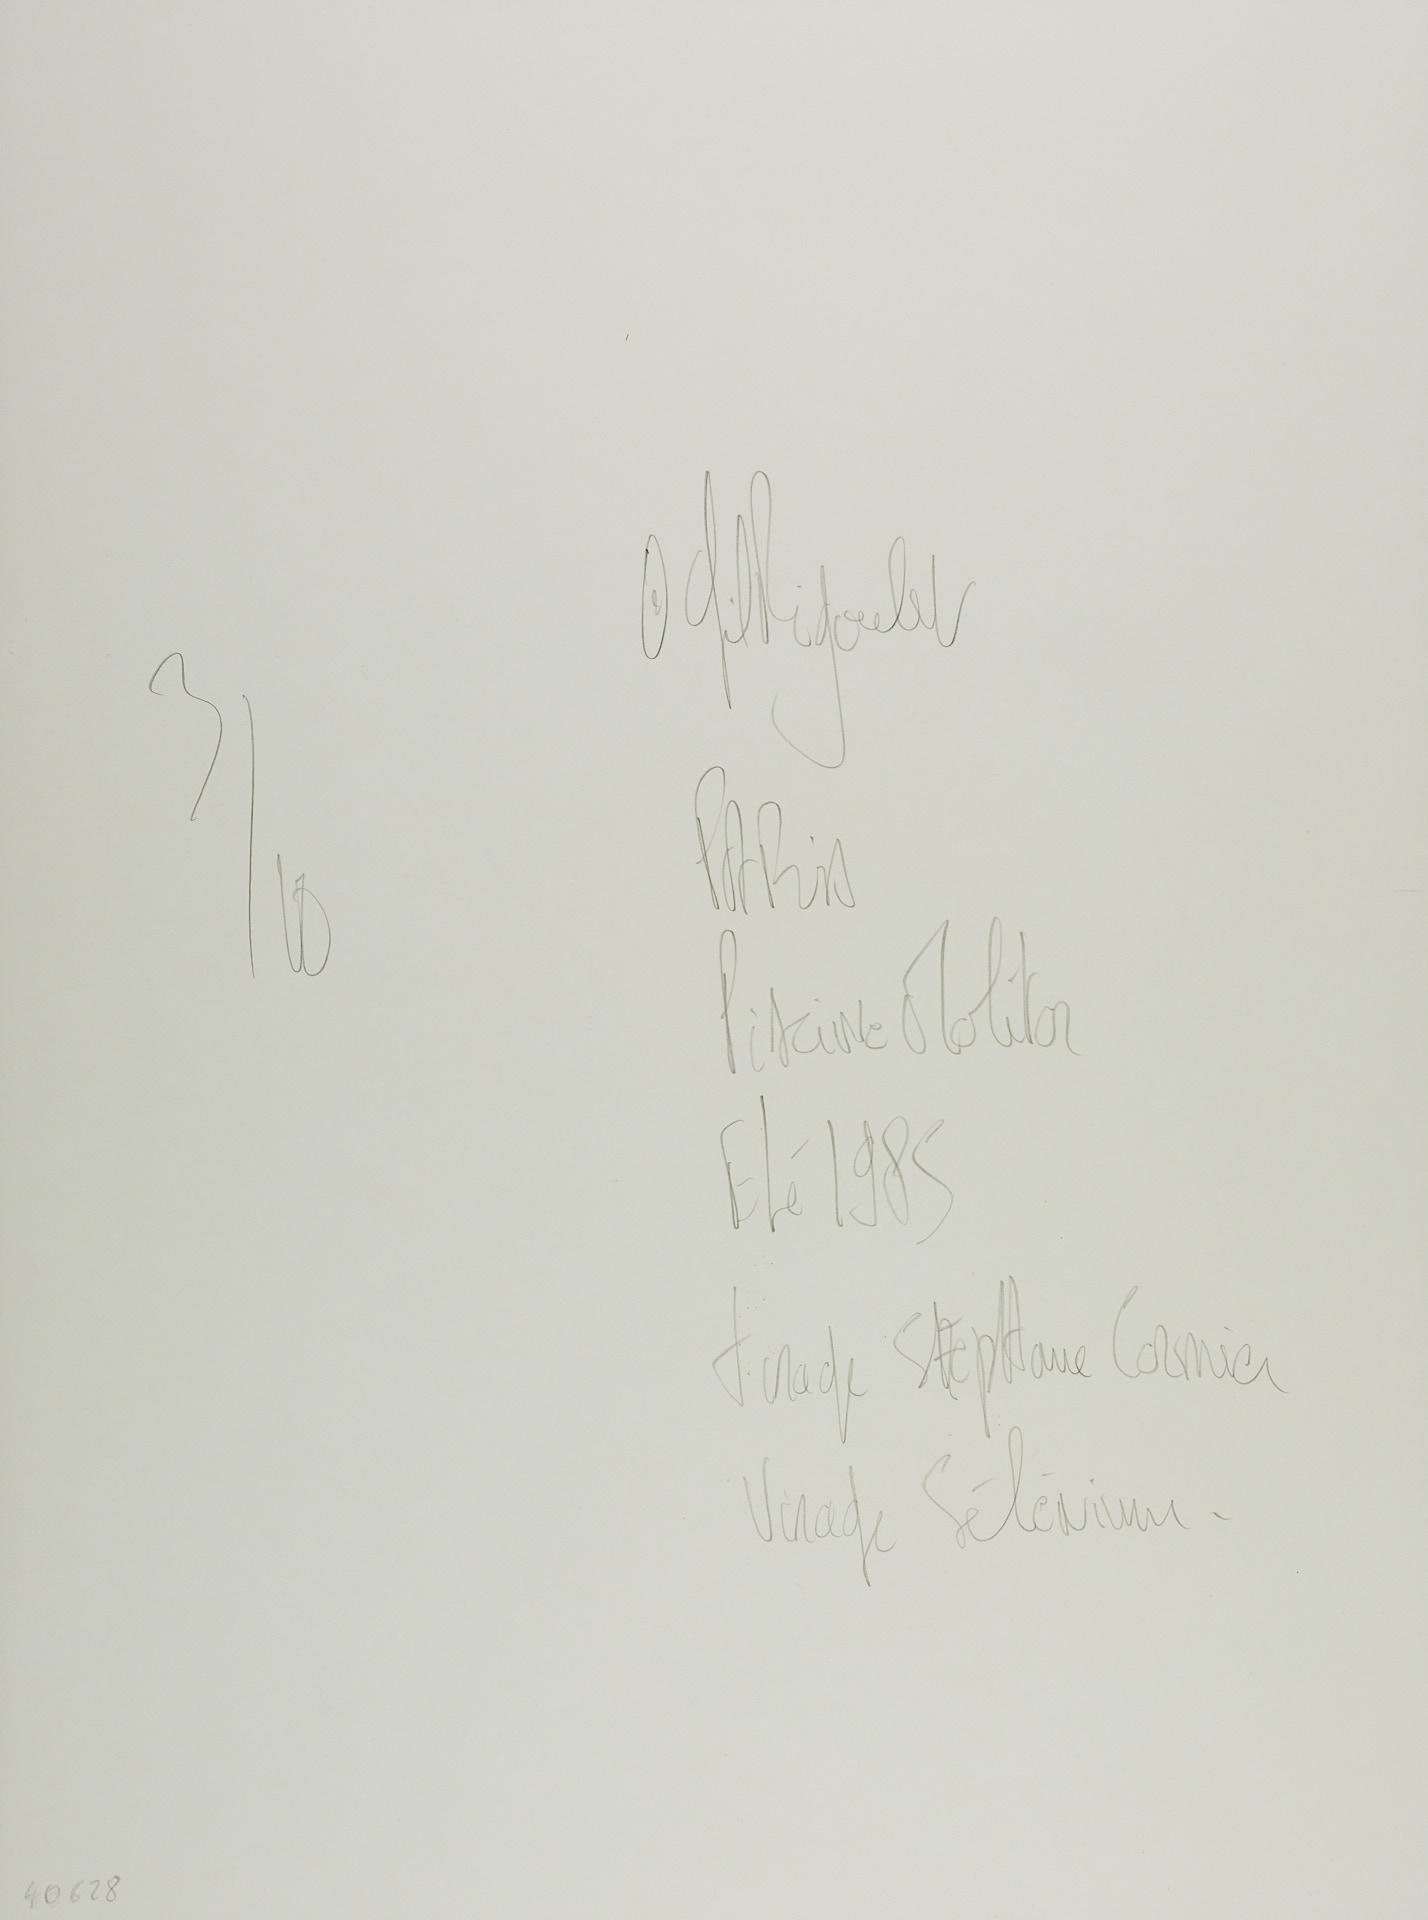 © Gil Rigoulet
3/10
PARis
Piscine Molitor
Eté 1985
Tirage StepHane Cormier
Virage Sélénium -
40628